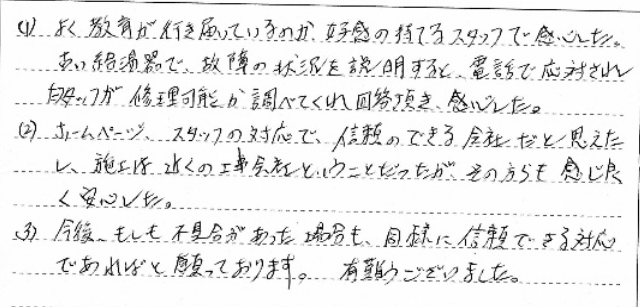 (1) よく教育が行き届いているのか、好感の持てるスタッフで感心した。
古い給湯器で、故障の状況を説明すると、電話で応対され
たスタッフが修理可能か調べてくれ回答頂き、感心した。
(2) ホームページ、スタッフの対応で、信頼のできる会社だと思えた
し、施工は近くの工事会社ということだったが、その方らも感じ良
く安心した。
(3) 今後、もしも不具合があった場合も、同様に信頼できる対応
であればと願っております。 有難うございました。